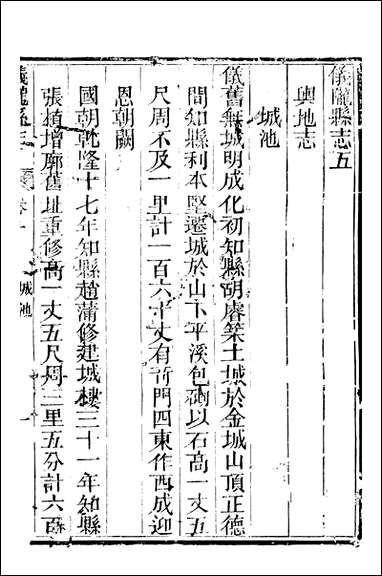 儀隴縣志五
輿地志
城池
儀舊無城明成化初知縣胡睿築土城於金城山頂正德
間知縣利本堅遷城於山下平溪包砌以石高一丈五
尺周不及一里計一百六十丈有奇門四東作西成迎
恩朝闕
國朝乾隆十七年知縣趙蒲修建城樓三十一年知縣
張植增廓舊址重修高一丈五尺周三里五分計六百
儀隴縣志
城池
一